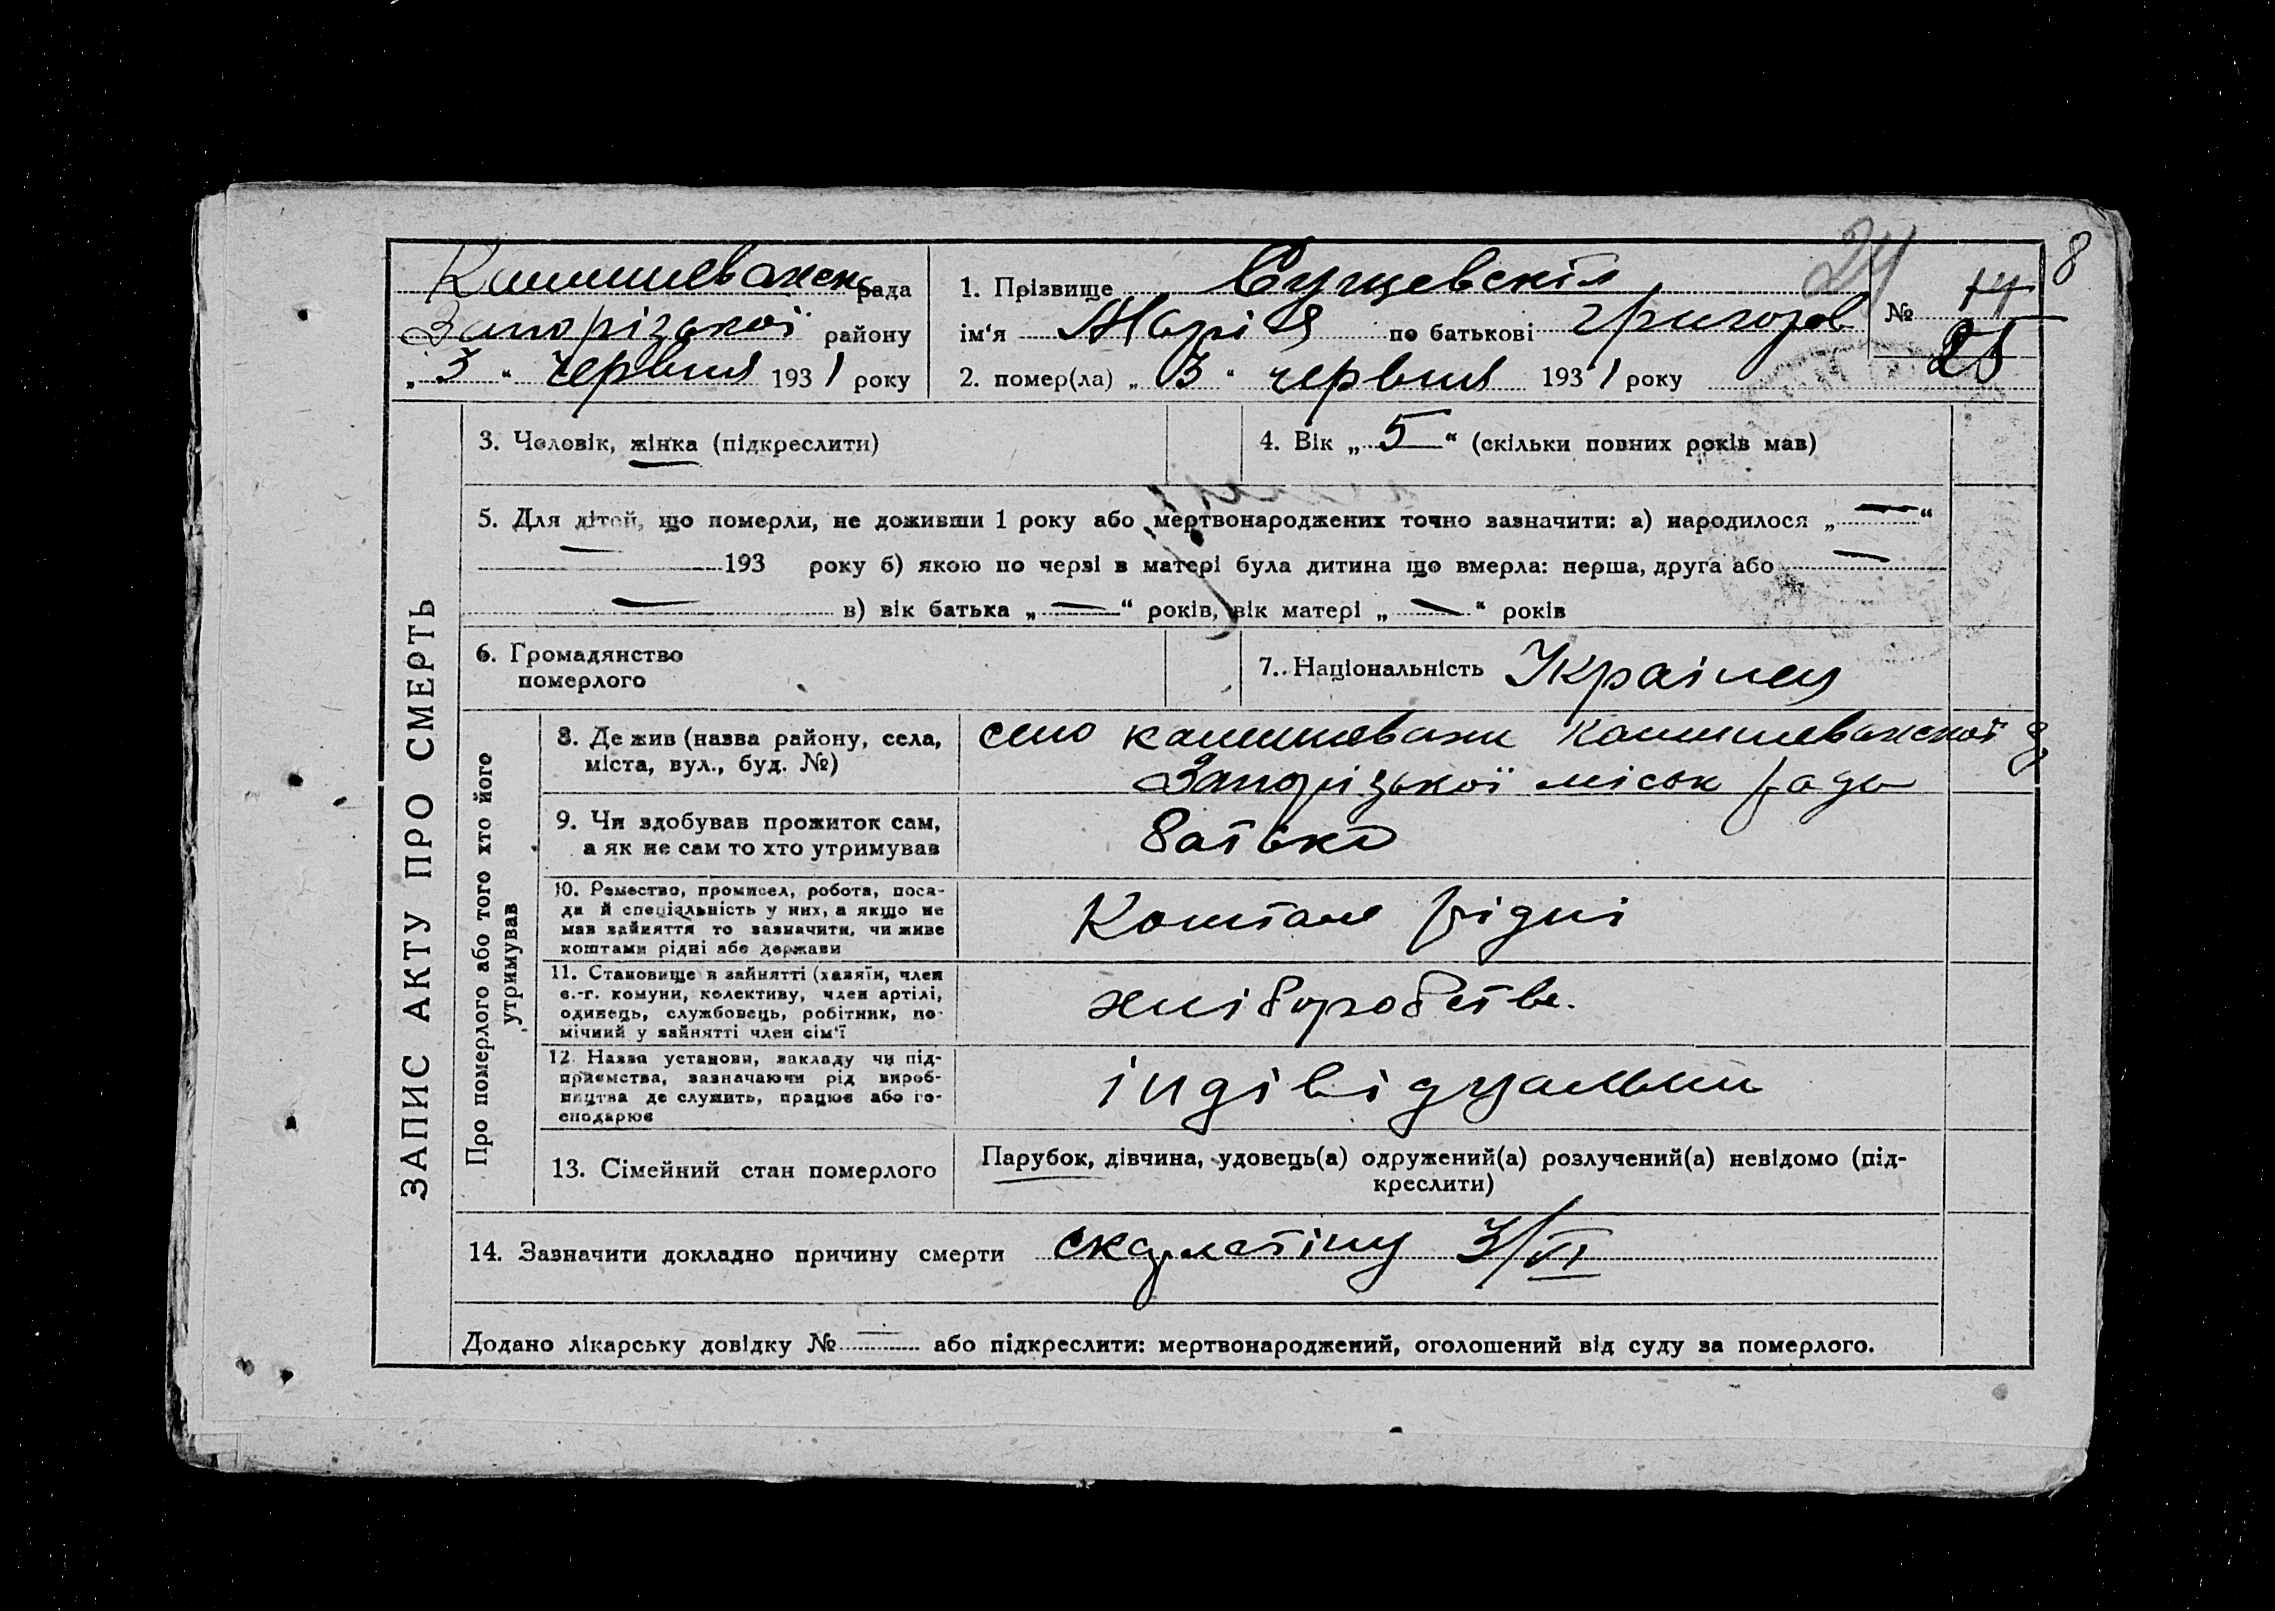 24
8
Камишевахськ рада
Запорізької району
„ 3 “ червня 1931 року
1. Прізвище Сущевскія
ім‘я Марія по батькові Григоров
2. помер(ла) „ 3 “ червня 1931 року
№ 14
28
ЗАПИС АКТУ ПРО СМЕРТЬ
3. Чоловік, жінка (підкреслити)
4. Вік „ 5 “ (скільки повних років мав)
5. Для дітей, що померли, не доживши 1 року або мертвонароджених точно зазначити: а) народилося „ — “
— 193 року б) якою по черзі в матері була дитина що вмерла: перша, друга або —
— в) вік батька „ — “ років, вік матері „ — “ років
6. Громадянство
померлого
7. Національність Українец
Про померлого або того хто його
утримував
8. Де жив (назва району, села,
міста, вул., буд. №)
село камишеваxи Камишеваxскої
Запорізької міськ рада
9. Чи здобував прожиток сам,
а як не сам то хто утримував
батько
10. Ремество, промисел, робота, поса-
да й спеціяльність у них, а якщо не
мав зайняття то зазначити, чи живе
коштами рідні або держави
Коштам рідні
11. Становище в зайнятті (хазяїн, член
с.-г. комуни, колективу, член артілі,
одинець, службовець, робітник, по-
мічний у зайнятті член сім‘ї
хліборобств.
12. Назва установи, закладу чи під-
приємства, зазначаючи рід вироб-
ництва де служить, працює або го-
сподарює
індівідуальни
13. Сімейний стан померлого
Парубок, дівчина, удовець(а) одружений(а) розлучений(а) невідомо (під-
креслити)
14. Зазначити докладно причину смерти скарлатіну 3/VI
Додано лікарську довідку № — або підкреслити: мертвонароджений, оголошений від суду за померлого.